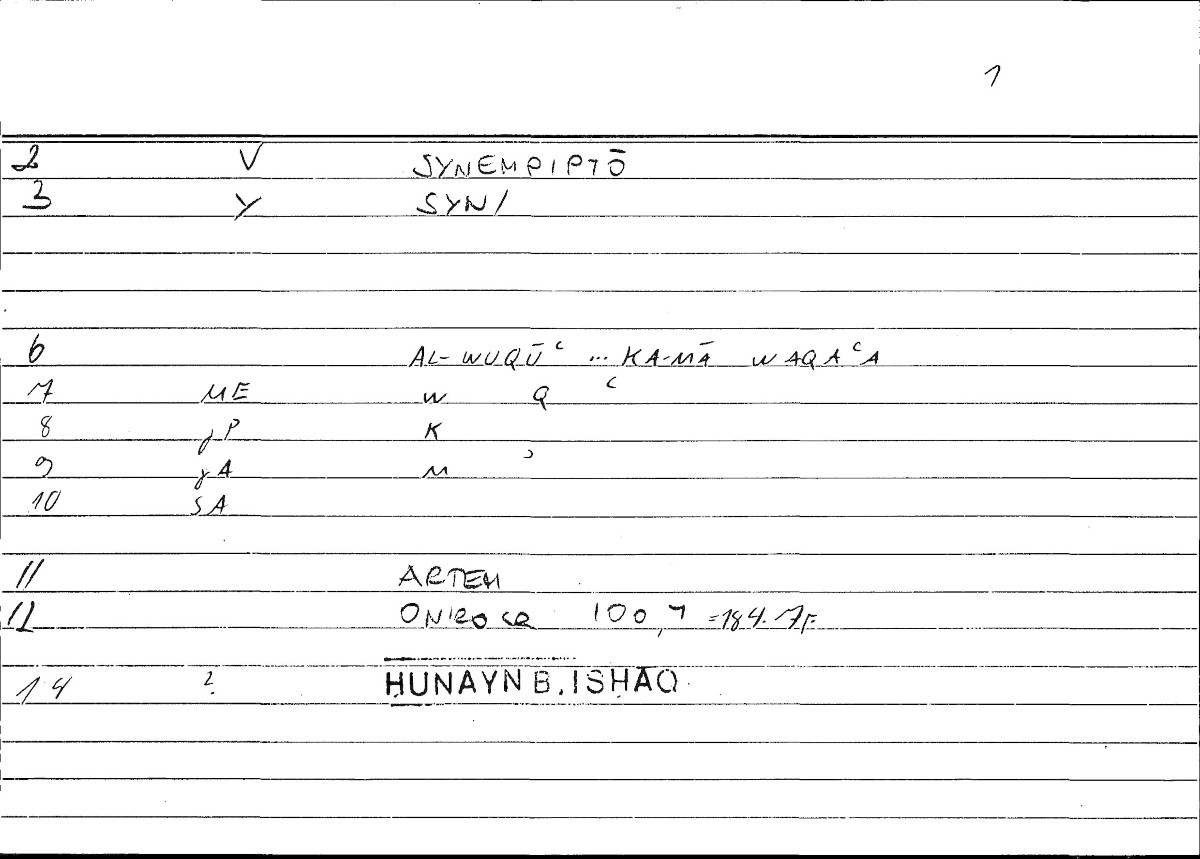 1
2 V SYNEMPIPTŌ
3 Y SYN/
6 AL-WUQŪʿ ... KA-MĀ WAQAʿA
7 ME W Q ʿ
8 P K
9 A M ʾ
10 SA
11 ARTEM
12 ONIROCR 100,7 =184.7F.
14 ? ḤUNAYN B. ISḤĀQ